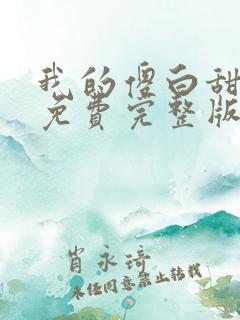 我的傻白甜
免费完整版
肖永琦
未经同意禁止转载